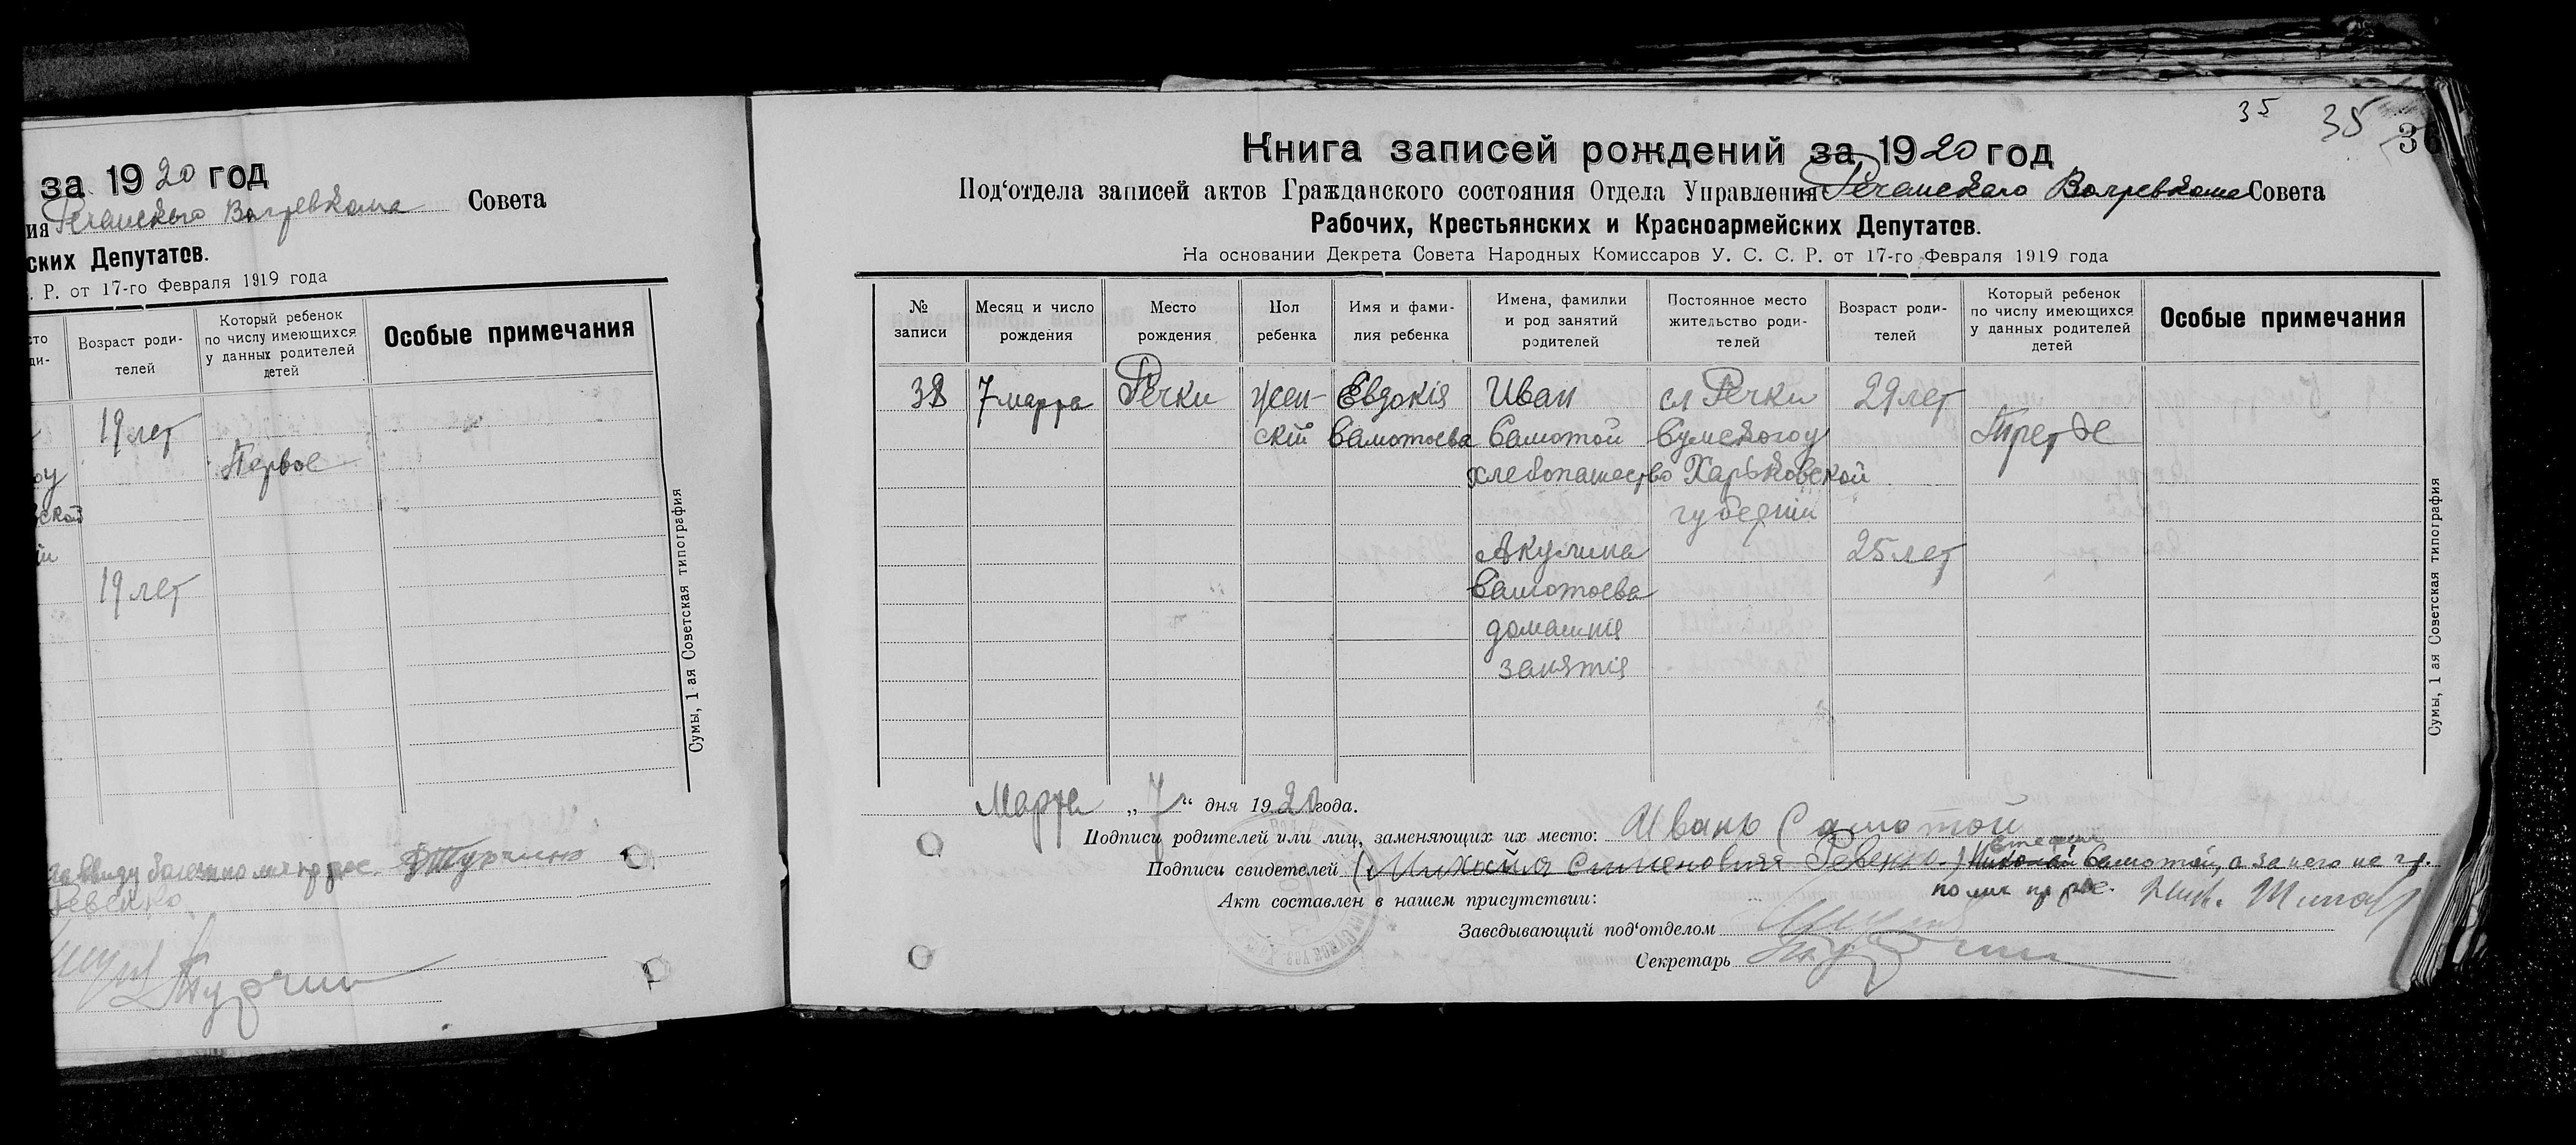 за 1920 год
ия Речанского Волревкома Совета
ских Депутатов.
. Р. от 17-го Февраля 1919 года
сто
ди-
Возраст роди-
телей
Который ребенок
по числу имеющихся
у данных родителей
детей
Особые примечания
19 лет
Первое
оу
ской
іи
19 лет
Сумы, 1-ая Советская типография
Турчин
35
35
36
Книга записей рождений за 1920 год
Под‘отдела записей актов Гражданского состояния Отдела Управления Речанского Волревкома Совета
Рабочих, Крестьянских и Красноармейских Депутатов.
На основании Декрета Совета Народных Комиссаров У. С. С. Р. от 17-го Февраля 1919 года
№
записи
Месяц и число
рождения
Место
рождения
Пол
ребенка
Имя и фами-
лия ребенка
Имена, фамилии
и род занятий
родителей
Постоянное место
жительство роди-
телей
Возраст роди-
телей
Который ребенок
по числу имеющихся
у данных родителей
детей
Особые примечания
38 7 марта Речки жен- Евдокія Иван сл Речки 29 лет
скій Самотоева Самотой Сумского у Третье
хлебопашество Харьковской
губерніи
Акулина 25 лет
Самотоева
домашнія
занятія
Сумы, 1-ая Советская типография
Марта „7“ дня 1920 года.
Подписи родителей или лиц, заменяющих их место: Иванъ Самотой
Подписи свидетелей Ревенко Самотой, а за него не гр.
по лич пр рос.
Акт составлен в нашем присутствии:
Заведывающий под‘отделом
Секретарь Турчин